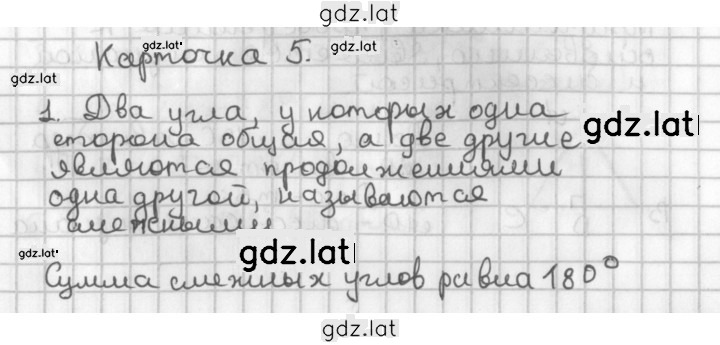 gdz.lat
Карточка 5.
gdz.lat
gdz.lat
gdz.lat
1. Два угла, у которых одна
сторона общая, а две другие
gdz.lat
являются продолжениями
одна другой, называются
смежными
gdz.lat
gdz.lat
Сумма смежных углов равна 180°
gdz.lat